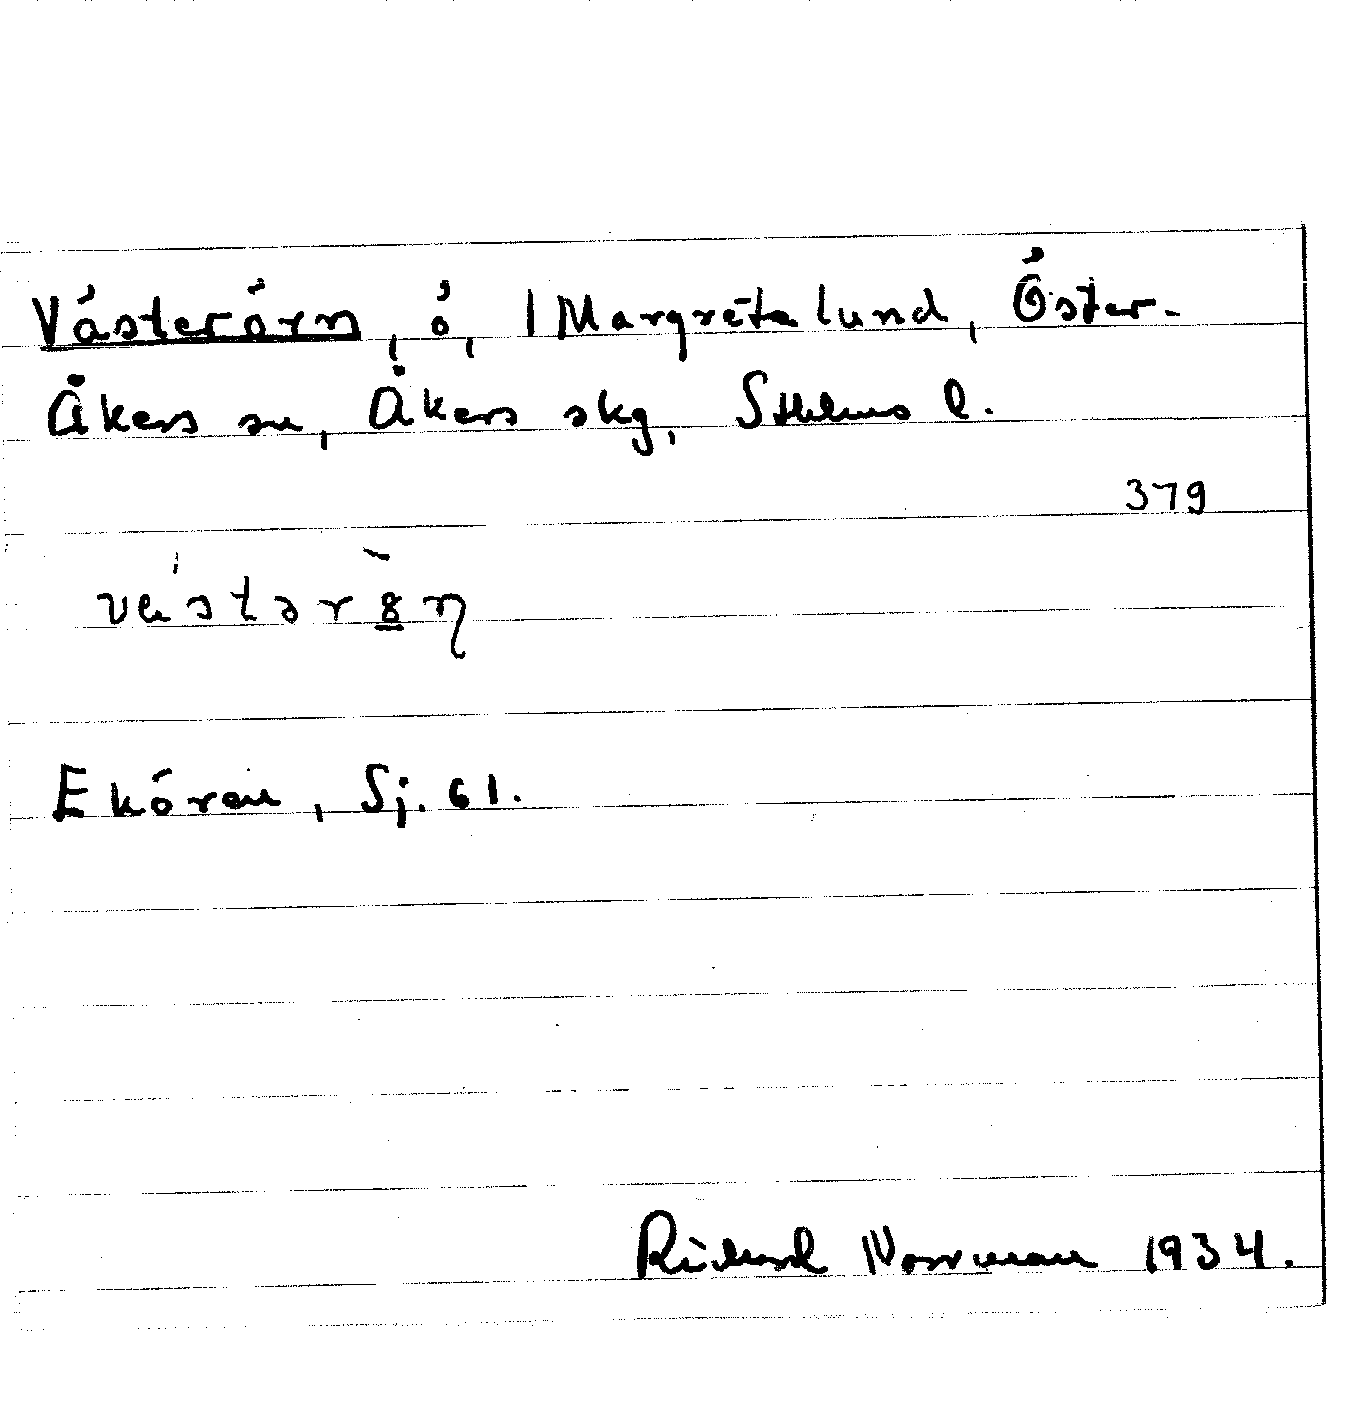 Västerörn, ö, 1 Margretelund, Öster-
Åkers sn, Åkers skg, Sthlms l.
379
Ekören, Sj. 61.
Richard Norrman 1934.